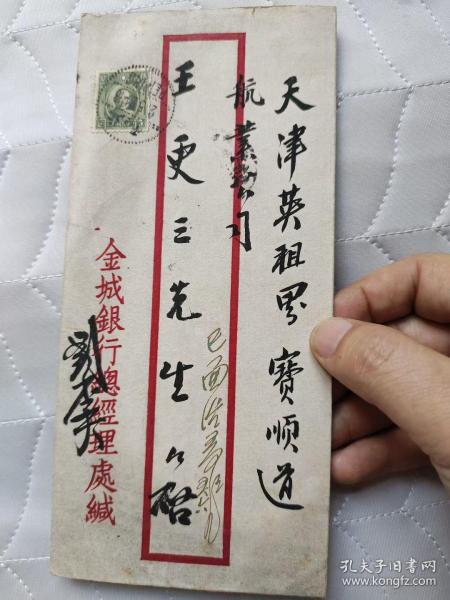 天津英租界寶順道
航業公司
王更三先生 公啟
金城銀行總經理處緘
孔夫子旧书网
www.kongfz.com